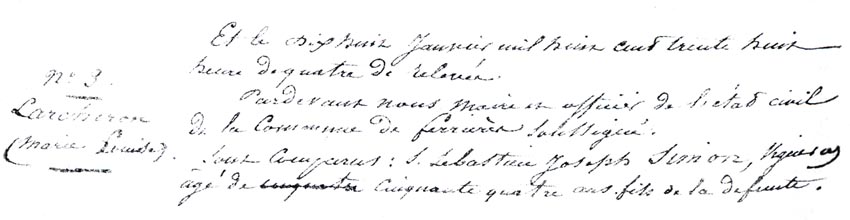 Et le dix huit Janvier mil huit cent trente huit
heure de quatre de relevée.
n.° 3.
Pardevant nous maire et officier de l'état civil
Larcheron
de la Commune de ferrières soussigné.
(Marie Louise)
Sont Comparus : S. Sébastien Joseph Simon,
âgé de cinquante cinquante quatre ans fils de la defunte.